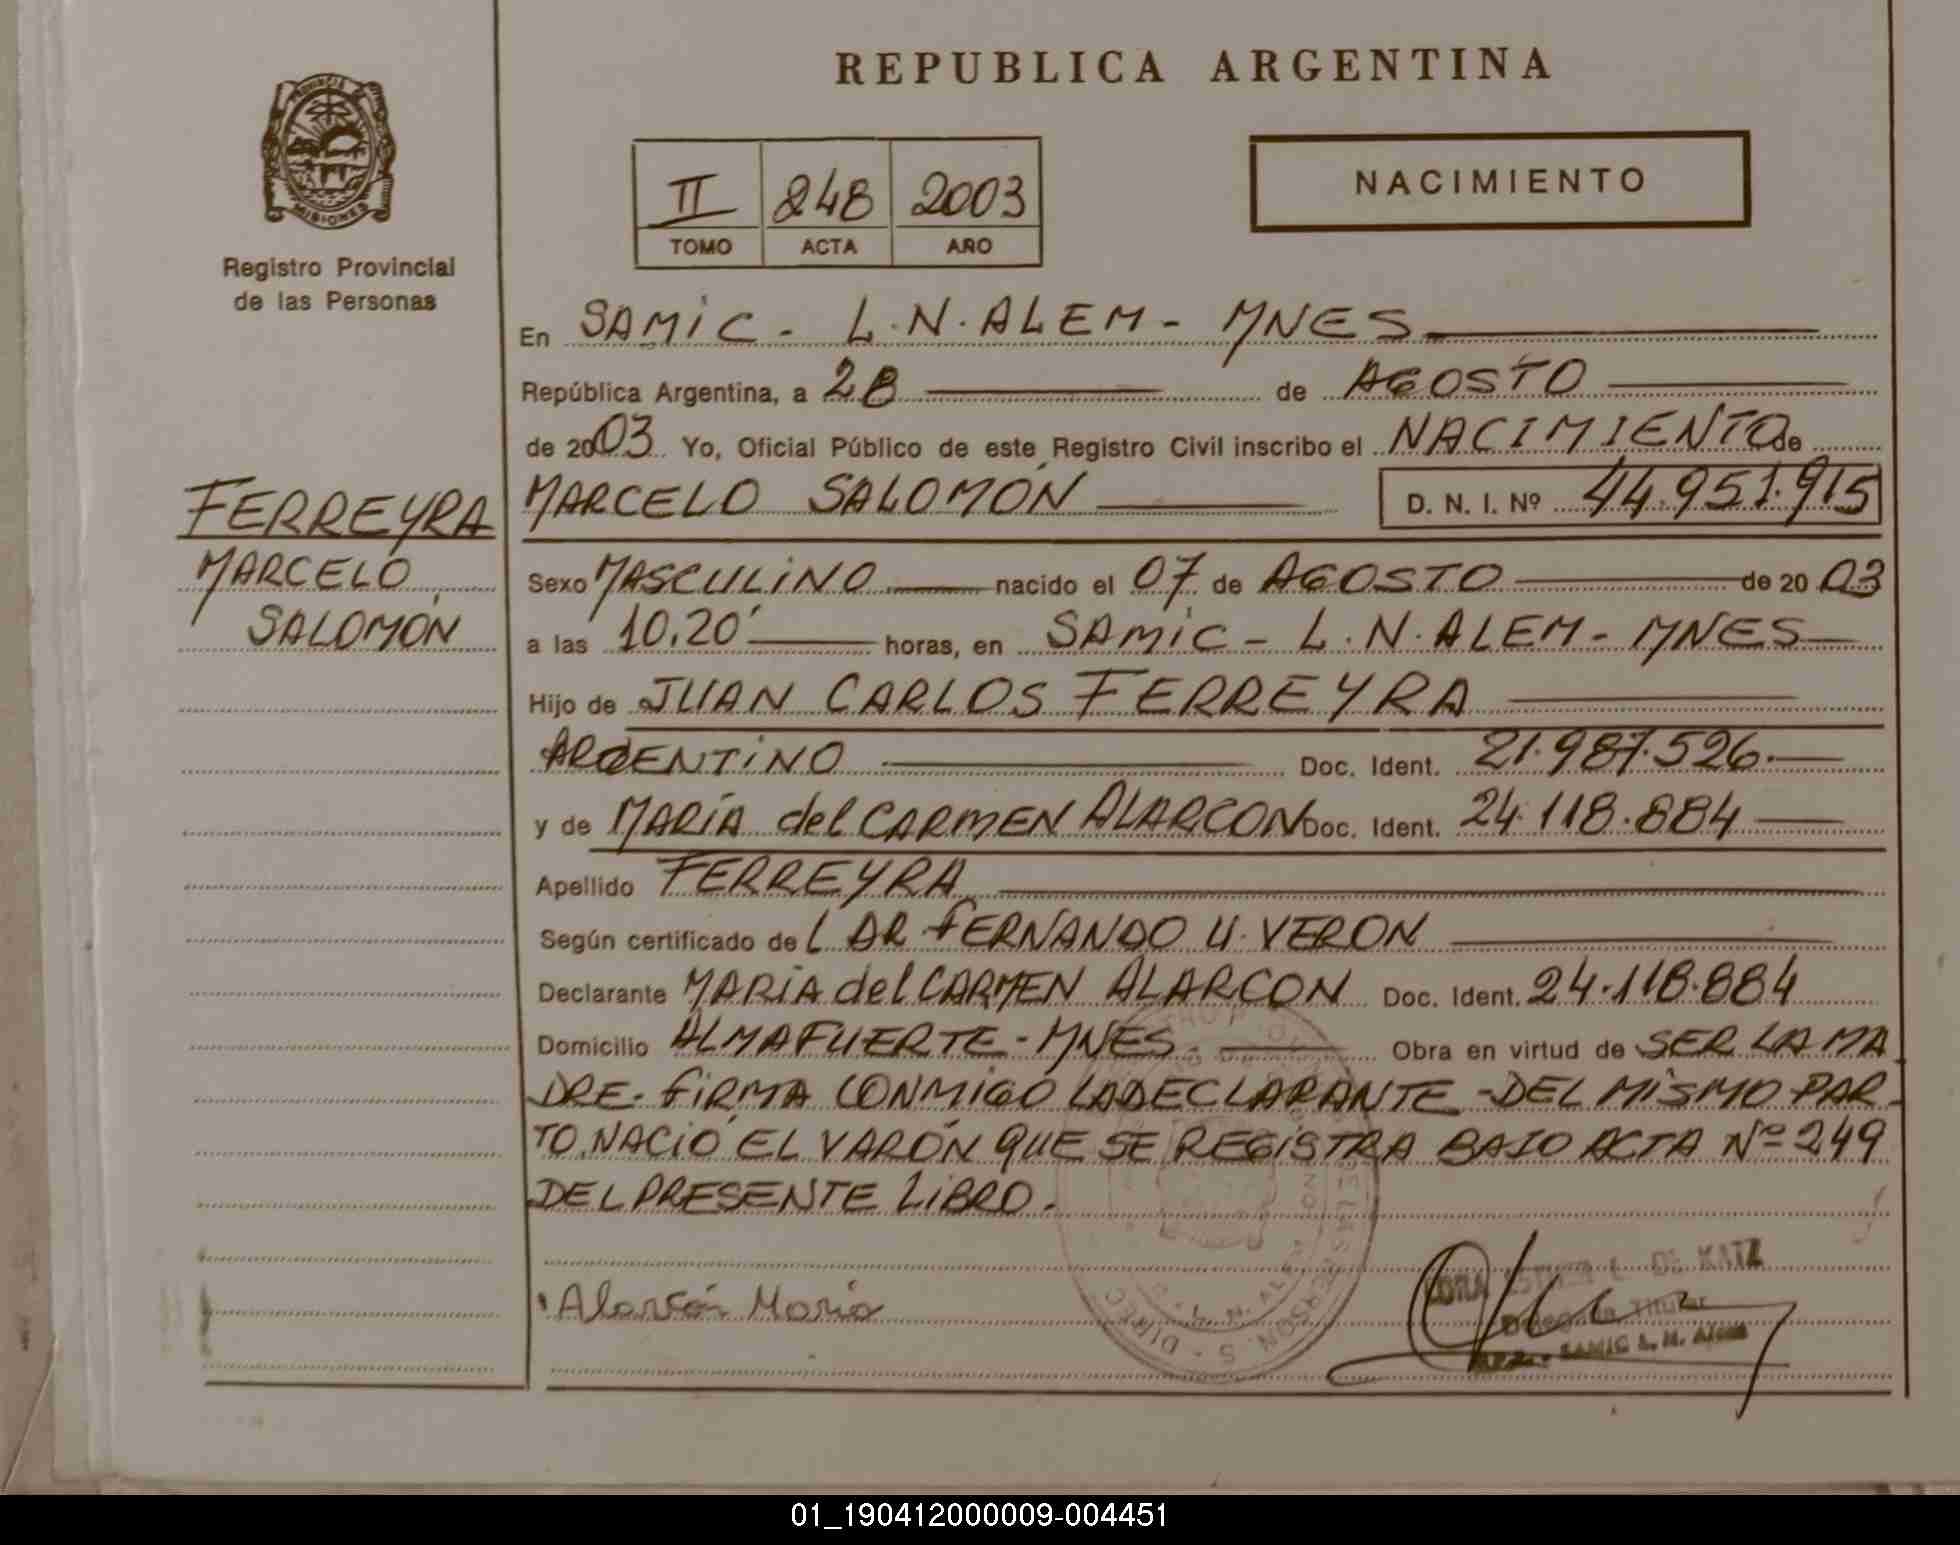 REPUBLICA ARGENTINA
PROVINCIA DE
MISIONES
Registro Provincial
de las Personas
II 248 2003
TOMO ACTA AÑO
NACIMIENTO
En SAMIC - L.N.ALEM - MNES
República Argentina, a 28 de AGOSTO
de 2003 Yo, Oficial Público de este Registro Civil inscribo el NACIMIENTO de
FERREYRA
MARCELO
SALOMÓN
MARCELO SALOMÓN D. N. I. Nº 44.951.915
Sexo MASCULINO nacido el 07 de AGOSTO de 2003
a las 10.20' horas, en SAMIC - L.N.ALEM - MNES
Hijo de JUAN CARLOS FERREYRA
ARGENTINO Doc. Ident. 21.987.526.
y de MARÍA del CARMEN ALARCON Doc. Ident. 24.118.884
Apellido FERREYRA
Según certificado del DR FERNANDO U. VERON
Declarante MARÍA del CARMEN ALARCON Doc. Ident. 24.118.884
Domicilio ALMAFUERTE - MNES. Obra en virtud de SER LA MA
DRE. FIRMA CONMIGO LA DECLARANTE - DEL MISMO PAR-
TO, NACIÓ EL VARÓN QUE SE REGISTRA BAJO ACTA Nº 249
DEL PRESENTE LIBRO.
Alarcón María
DE KATZ
Titular
SAMIC L. N. Alem
01_190412000009-004451